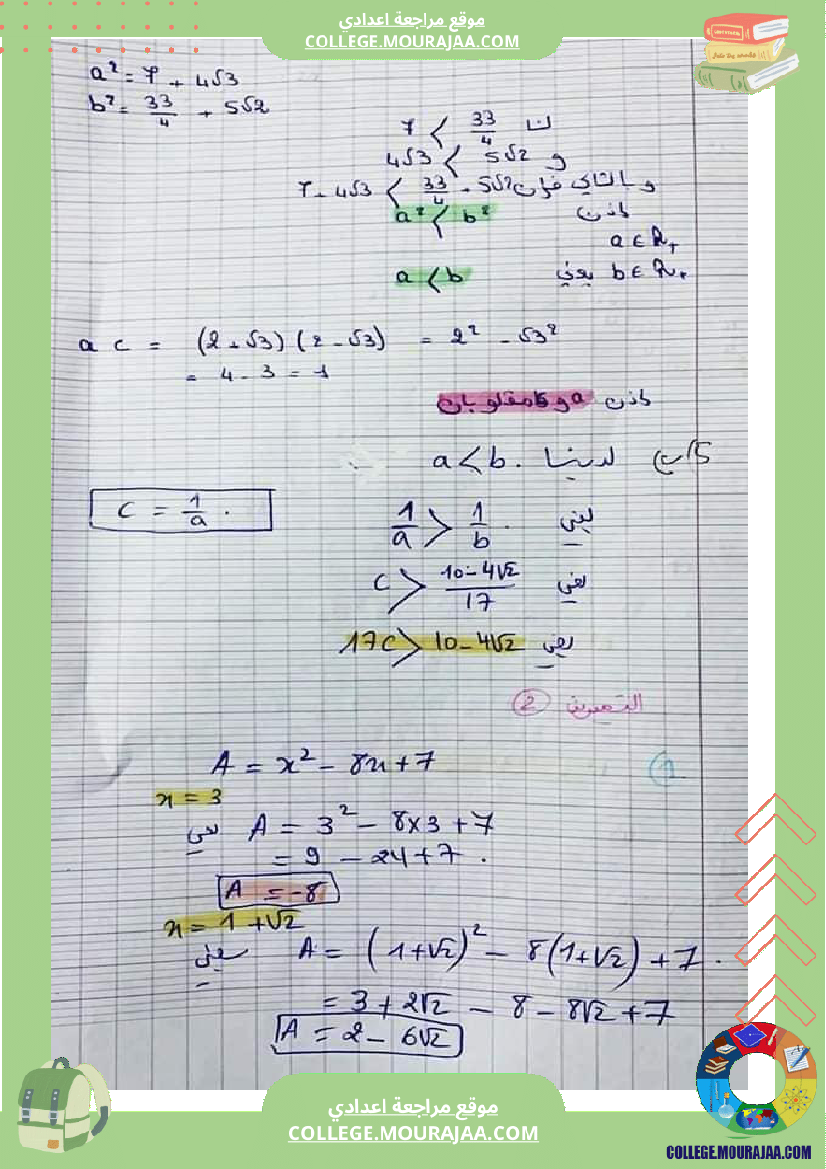 موقع مراجعة اعدادي
COLLEGE.MOURAJAA.COM
a² = 7 + 4√3
b² = 33/4 + 5√2
7 < 33/4
و 4√3 < 5√2
و بالتالي فإن 7 + 4√3 < 33/4 + 5√2
إذن a² < b²
a ∈ ℝ₊
b ∈ ℝ₊ يعني a < b
a c = (2 + √3) (2 - √3) = 2² - √3²
= 4 - 3 = 1
إذن a و c مقلوبان
5) ب) لدينا a < b.
يعني 1/a > 1/b.
c = 1/a.
يعني c > 10-4√2/17
يعني 17c > 10-4√2
التمرين 2
1
A = x² - 8x + 7
x = 3
يعني A = 3² - 8x3 + 7
= 9 - 24 + 7.
A = -8
x = 1 + √2
يعني A = (1+√2)² - 8(1+√2) + 7.
= 3 + 2√2 - 8 - 8√2 + 7
A = 2 - 6√2
موقع مراجعة اعدادي
COLLEGE.MOURAJAA.COM
COLLEGE.MOURAJAA.COM